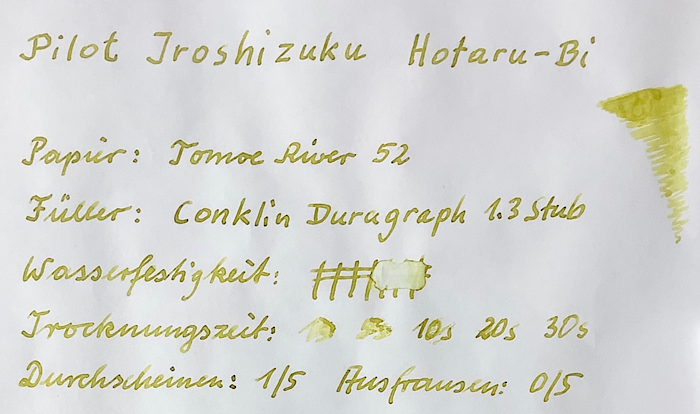 Pilot Iroshizuku Hotaru-Bi
Papier: Tomoe River 52
Füller: Conklin Duragraph 1.3 Stub
Wasserfestigkeit:
Trocknungszeit: 1s 5s 10s 20s 30s
Durchscheinen: 1/5 Ausfransen: 0/5